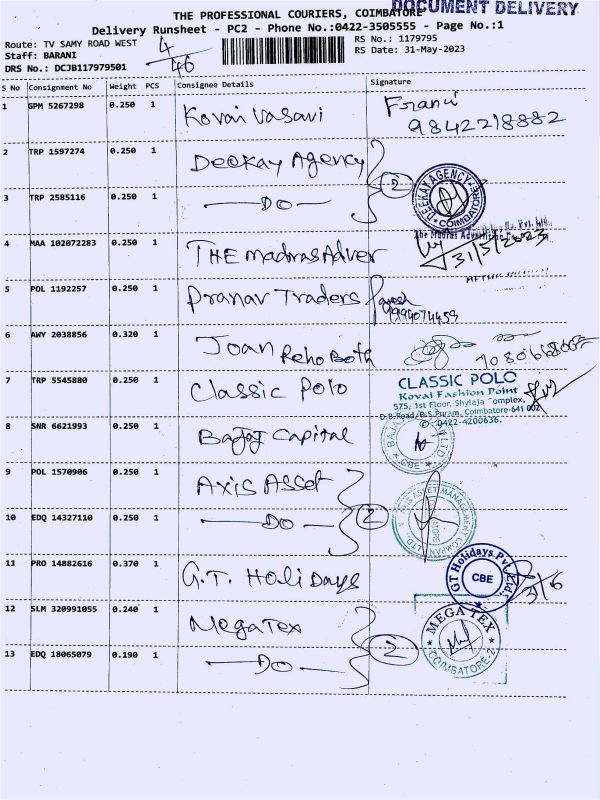 THE PROFESSIONAL COURIERS, COIMBATORE
DOCUMENT DELIVERY
Delivery Runsheet - PC2 - Phone No.:0422-3505555 - Page No.:1
Route: TV SAMY ROAD WEST
4/46
RS No.: 1179795
Staff: BARANI
RS Date: 31-May-2023
DRS No.: DCJB117979501
S No Consignment No Weight PCS Consignee Details Signature
1 GPM 5267298 0.250 1 Kovai Vasavi
9842218882
2 TRP 1597274 0.250 1 Deekay Agency
2
DEEKAY AGENCY
COIMBATORE
3 TRP 2585116 0.250 1 Do
4 MAA 102072283 0.250 1 THE madras Adver
31/5/2023
5 POL 1192257 0.250 1 Pranav Traders
9994074459
6 AWY 2038856 0.320 1 Joan Rehoboth
7 TRP 5545880 0.250 1 Classic Polo
CLASSIC POLO
Kovai Fashion Point
575, 1st Floor, Shylaja Complex,
D.B.Road, R.S.Puram, Coimbatore-641 002
✆: 0422-4200636.
8 SNR 6621993 0.250 1 Bajaj Capital
BAJAJ
LTD
CBE
9 POL 1570906 0.250 1 Axis Asset
2
ASSET MANAGEMENT COMPANY LTD
10 EDQ 14327110 0.250 1 Do
11 PRO 14882616 0.370 1 G.T. Holidays
GT Holidays Pvt. Ltd.
CBE
12 SLM 320991055 0.240 1 MegaTex
2
MEGA TEX
COIMBATORE-2
13 EDQ 18065079 0.190 1 Do